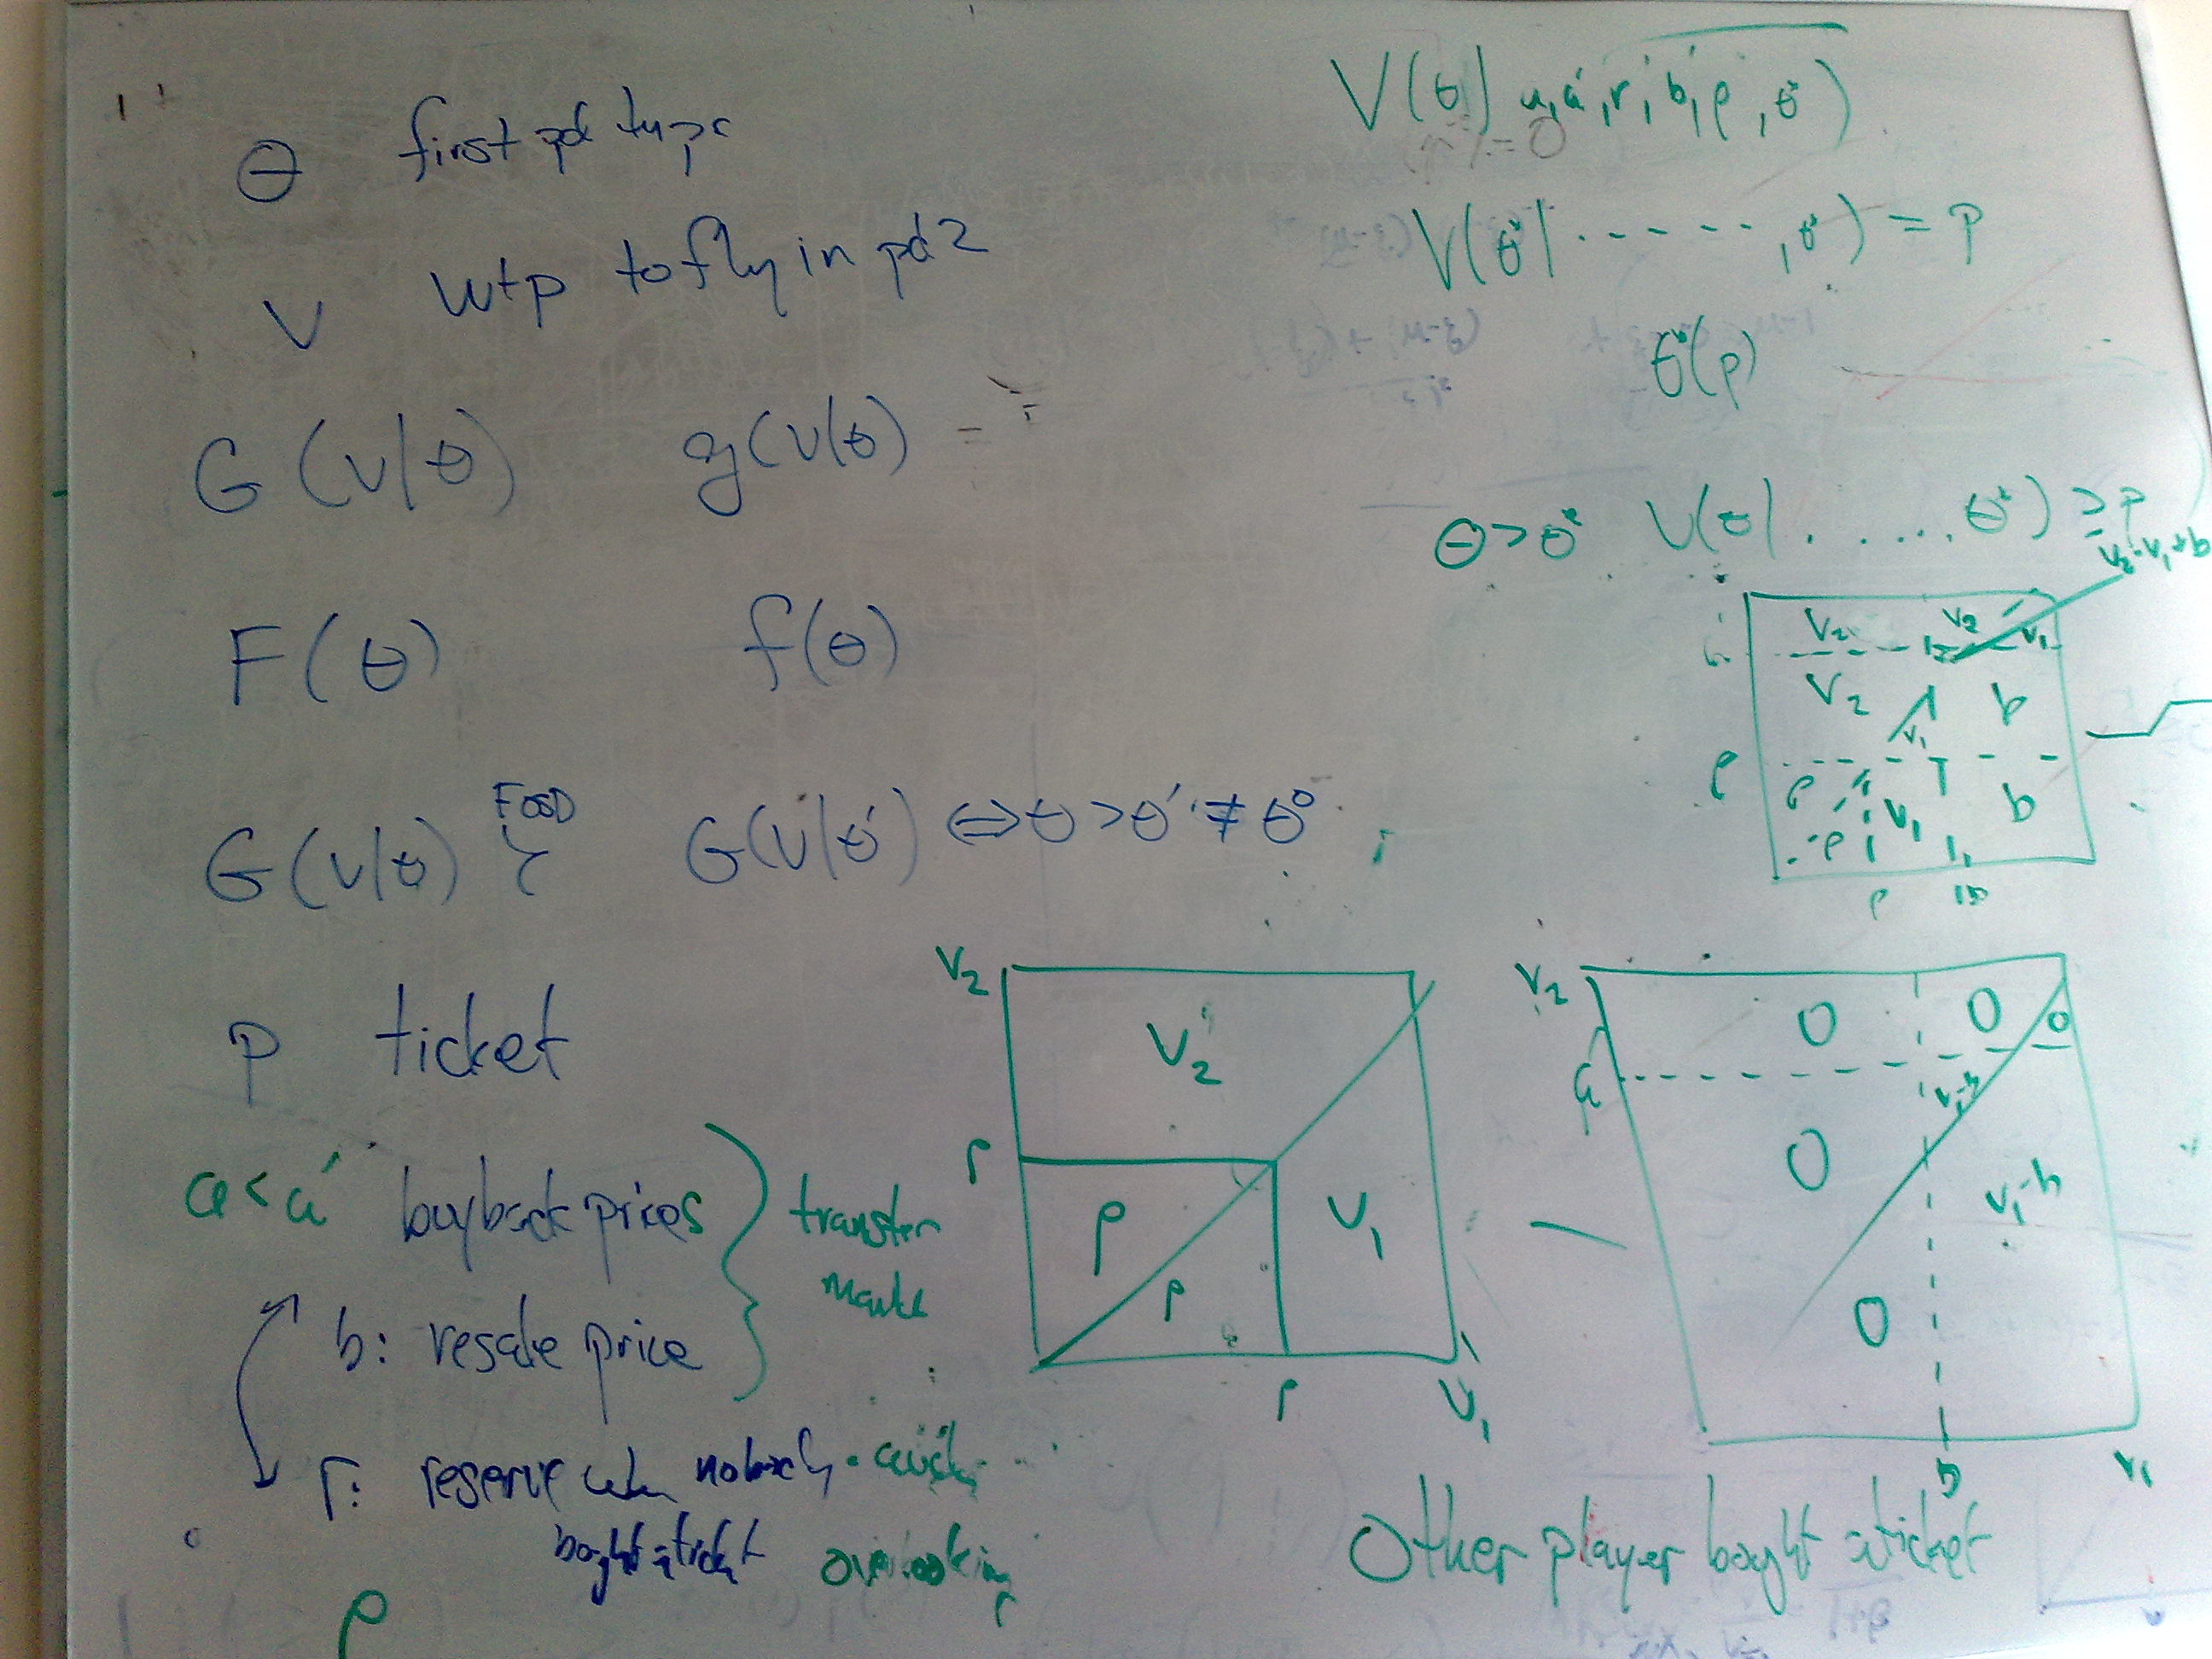 θ first pd type
V wtp to fly in pd 2
G(V|θ) g(V|θ) =
F(θ) f(θ)
G(V|θ) FOSD ≻ G(V|θ') ⇔ θ > θ' ≠ θ°
p ticket
a < a' buyback prices
b: resale price
transfer
r: reserve when nobody
bought a ticket
auction
overbooking
ρ
V(θ| a, a', r, b, ρ, θ*)
V(θ*| ------, θ*) = p
θ*(p)
θ > θ* V(θ| ..... θ*) ≥ p
V₂-V₁+b
V₂ V₂ V₁
V₂ b
ρ V₁
ρ V₁ b
ρ
ρ b
V₂
V₂
ρ
ρ V₁
ρ
ρ V₁
V₂
0 0 0
a
V₁-b
0 V₁-b
0
b V₁
Other player bought a ticket